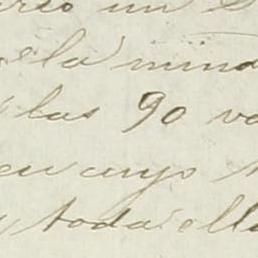 un
la mina
las 90 va
en cuyo
y toda ella